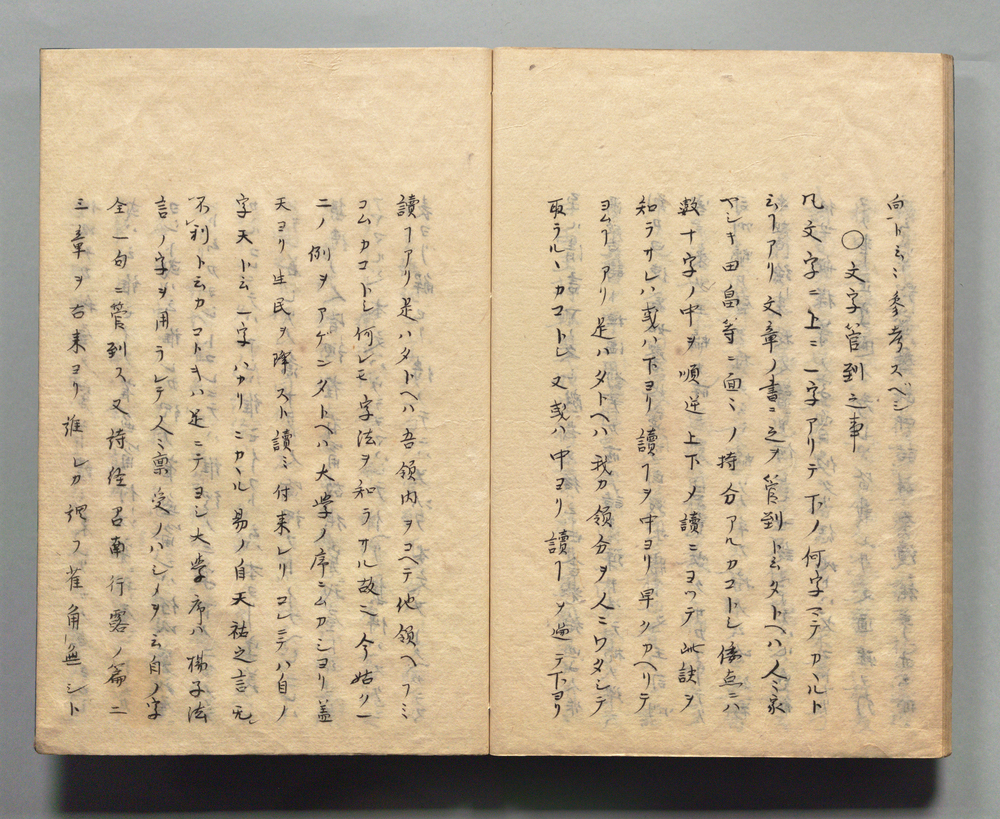 向ト云ニ參考スベシ
○文字管到之事
凡文字ニ上ニ一字アリテ下ノ何字マテカヽルト
云ヿアリ文章ノ書ニ之ヲ管到ト云タトヘハ人ミ家
ヤシキ田畠等ニ面ミノ持分アルカコトシ倭点ニハ
數十字ノ中ヲ順逆上下ノ讀ニヨツテ此訣ヲ
知ラサレハ或ハ下ヨリ讀ヿヲ中ヨリ早ツカヘリテ
ヨムヿアリ是ハタトヘハ我カ領分ヲ人ニワタシテ
取ラルヽカコトシ又或ハ中ヨリ讀ヿヲ過テ下ヨリ
讀ヿアリ是ハタトヘハ吾領内ヲコヘテ他領ヘフミ
コムカコトシ何レモ字法ヲ知ラサル故也今姑ク一
二ノ例ヲアゲンタトヘハ大學ノ序ニムカシヨリ蓋
天ヨリ生民ヲ降スト讀ミ付来レリコレニテハ自ノ
字天ト云一字ハカリニカヽル易ノ自天祐之吉无
不利ト云カコトキハ是ニテヨシ大學序ハ楊子法
言ノ字ヲ用ラレテ人ミ禀受ノハシメヲ云自ノ字
全一句ニ管到ス又詩経召南行露ノ篇ニ
三章ヲ古来ヨリ誰レカ謂フ雀角無シト